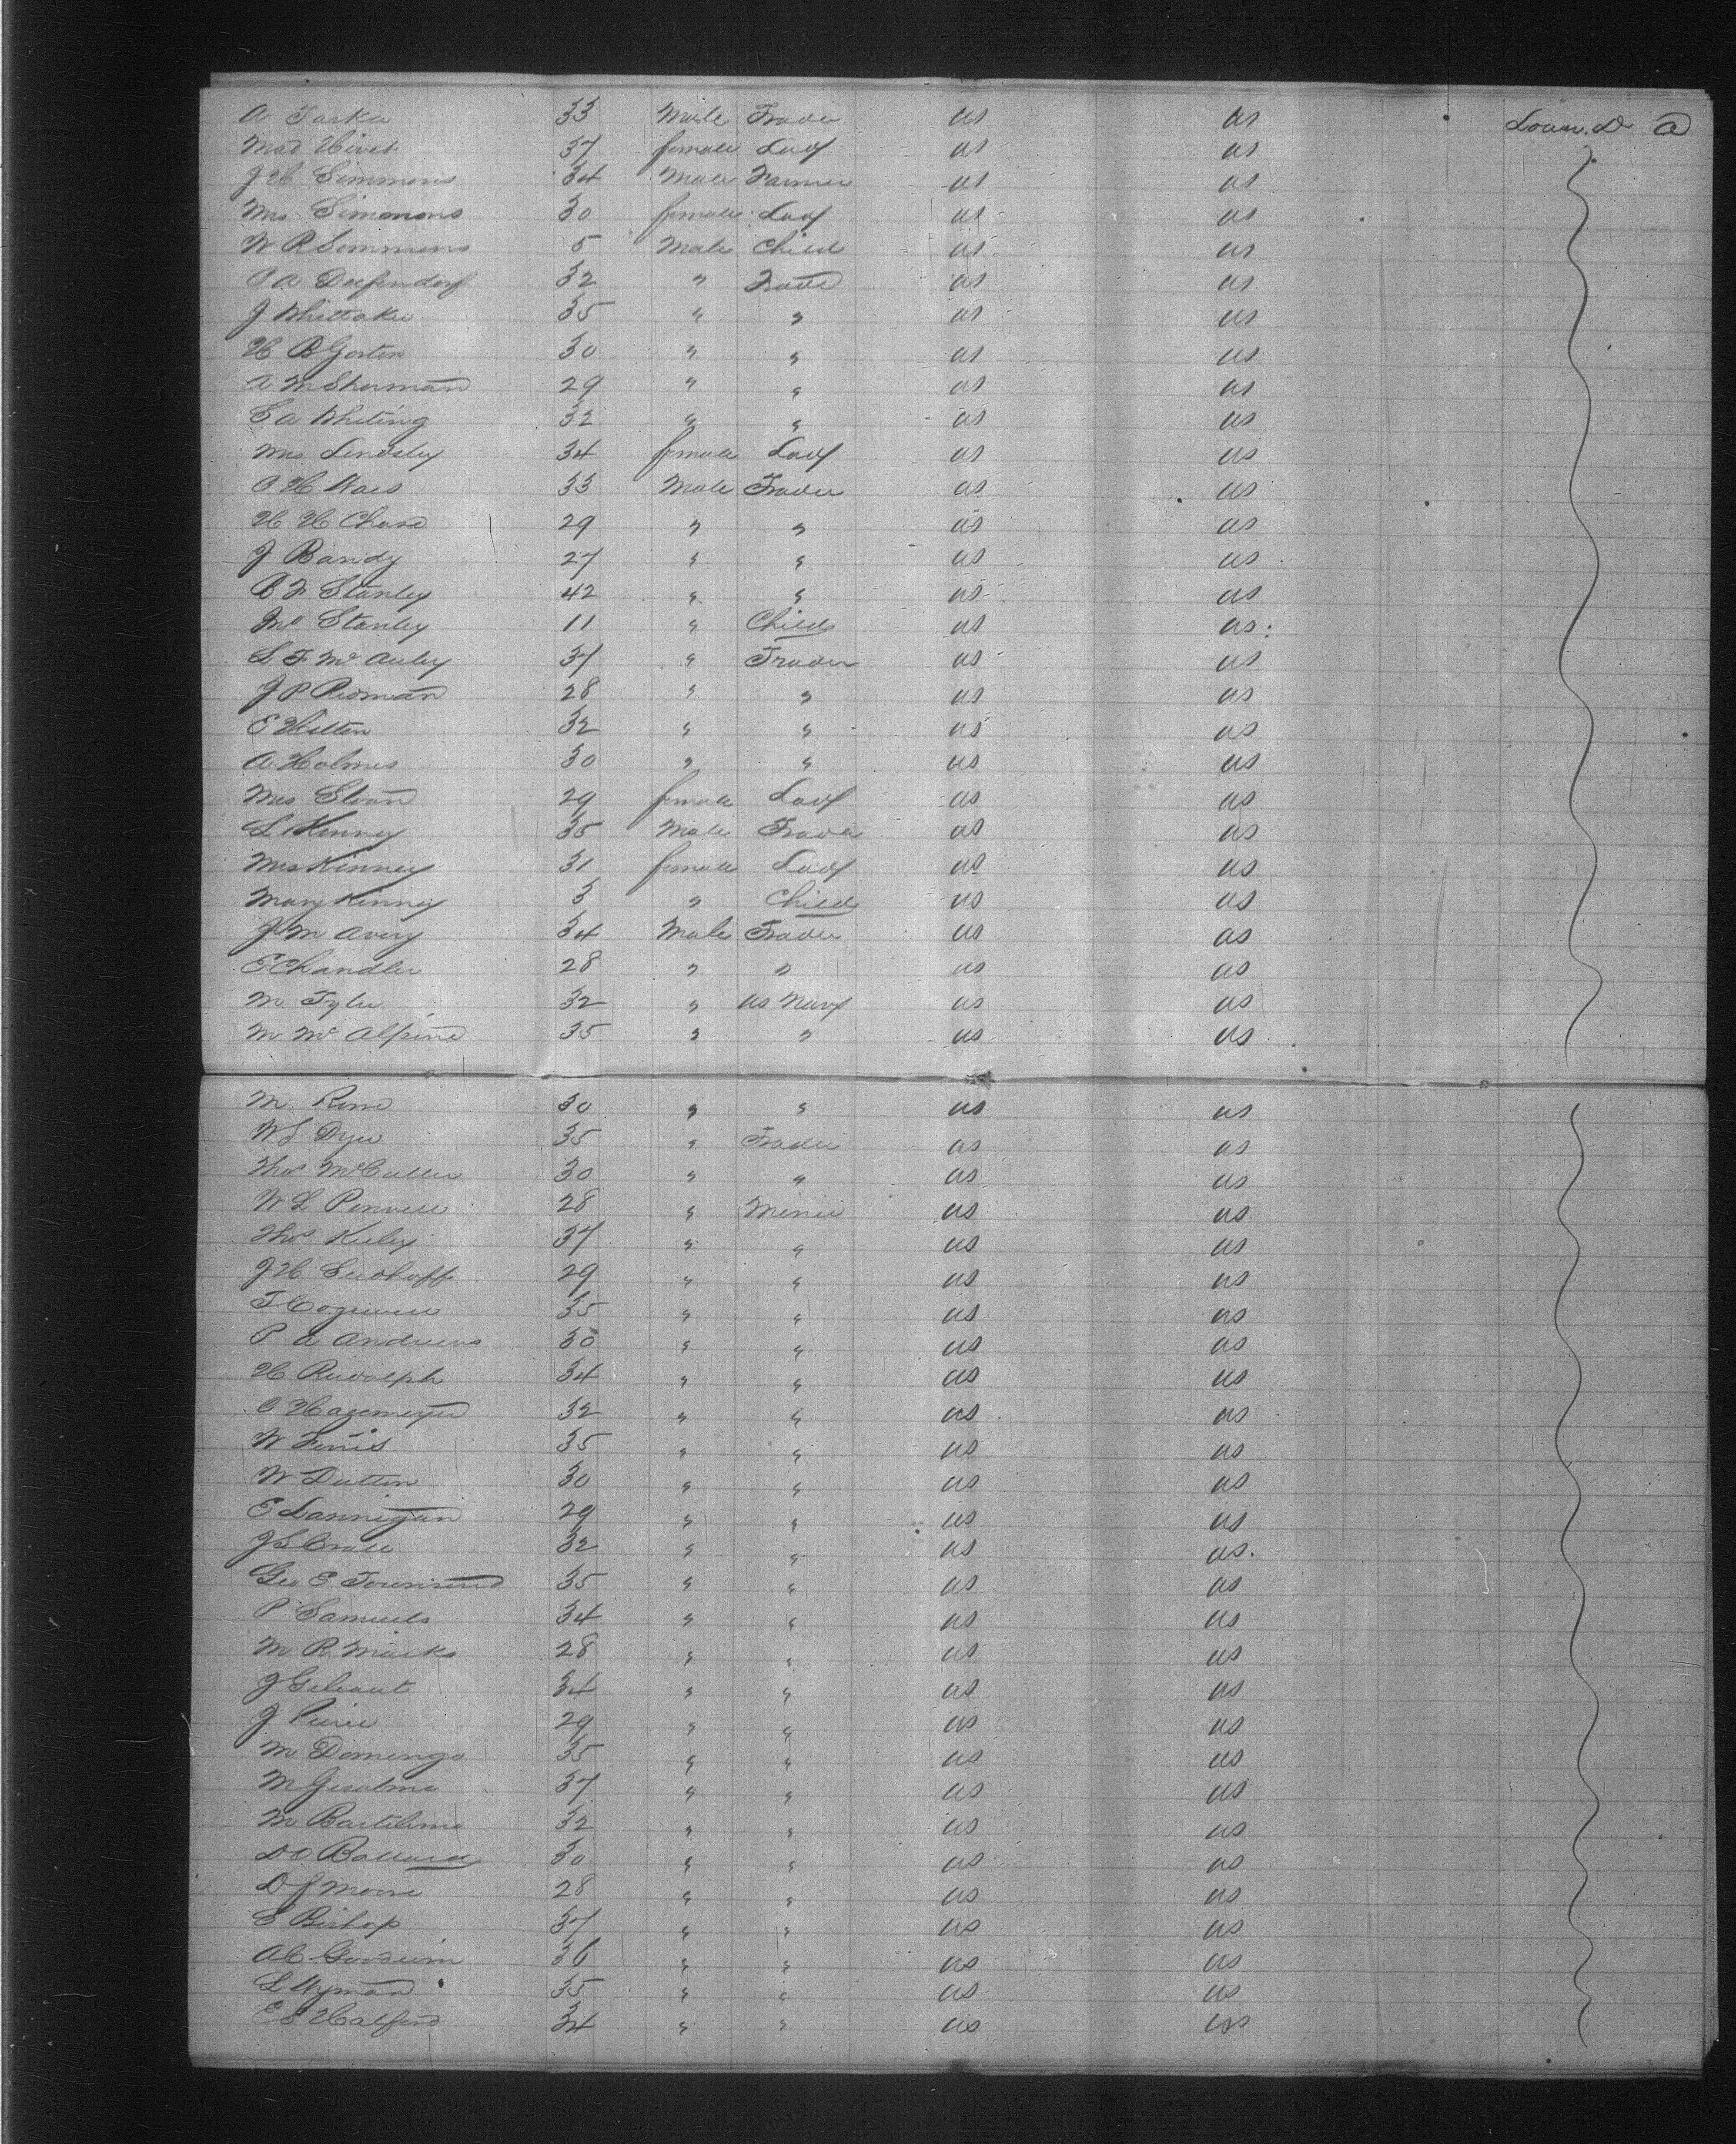 A Tarka 33 Male Trader us us Down. D a
Mad Hivet 37 female Lady us us
J H Simmons 34 Male Farmer us us
Mrs Simmons 30 female Lady us us
W R Simmons 5 Male Child us us
C A Deefendorf 32 " Trade us us
J Whittaker 35 " " us us
H B Gorten 30 " " us us
A M Sherman 29 " " us us
S A Whiting 32 " " us us
Mrs Lindsley 34 female Lady us us
C H 33 Male Trader us us
H H Chase 29 " " us us
J Bandy 27 " " us us
B F Stanley 42 " " us us
Stanley 11 " Child us us
S F McAuley 37 " Trader us us
J P 28 " " us us
E Hilton 32 " " us us
A Holmes 30 " " us us
Mrs Sloan 29 female Lady us us
L Kinney 35 Male Trader us us
Mrs Kinney 31 female Lady us us
Mary Kinney 3 " Child us us
J M Avery 34 Male Trader us us
E Chandler 28 " " us us
M Tyler 32 " us Navy us us
M McAlpine 35 " " us us
M 30 " " us us
W S Dyer 35 " Trader us us
Thos McCuller 30 " " us us
W L 28 " Miner us us
Thos Kieley 37 " " us us
J H 29 " " us us
T Cogswell 35 " " us us
P A Andrews 30 " " us us
H Rudolph 34 " " us us
C Hagemeyer 32 " " us us
W 35 " " us us
W Dutton 30 " " us us
E Dannigan 29 " " us us
J S 32 " " us us
Geo E Townsend 35 " " us us
P Samuels 34 " " us us
M R Marks 28 " " us us
J 34 " " us us
J Pierce 29 " " us us
M Domingo 35 " " us us
M 37 " " us us
M Bartilime 32 " " us us
D O Ballard 30 " " us us
D J Moore 28 " " us us
E Bishop 37 " " us us
A C Goodwin 36 " " us us
L Wyman 35 " " us us
E S Halford 34 " " us us